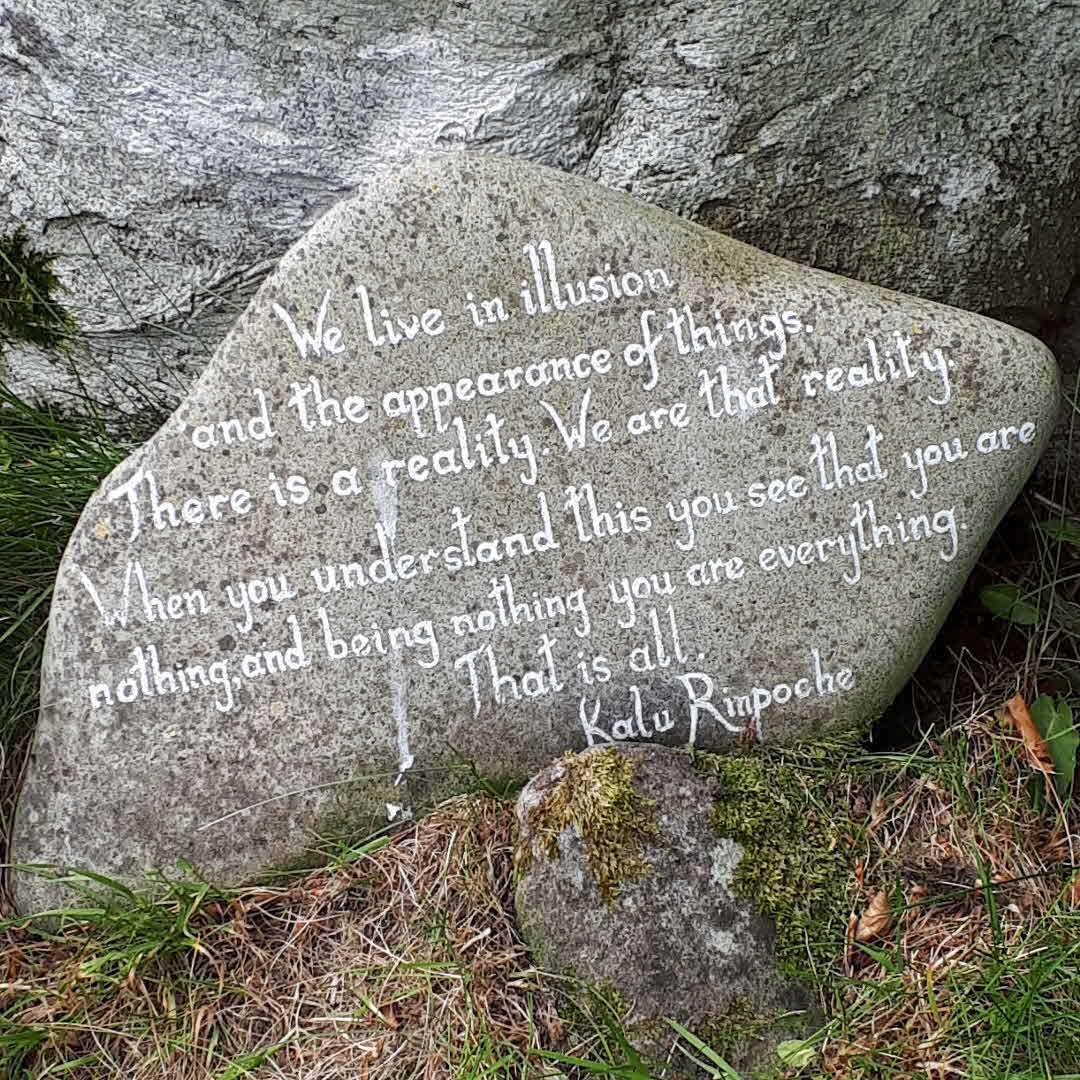 We live in illusion
and the appearance of things.
There is a reality. We are that reality.
When you understand this you see that you are
nothing, and being nothing you are everything.
That is all.
Kalu Rinpoche